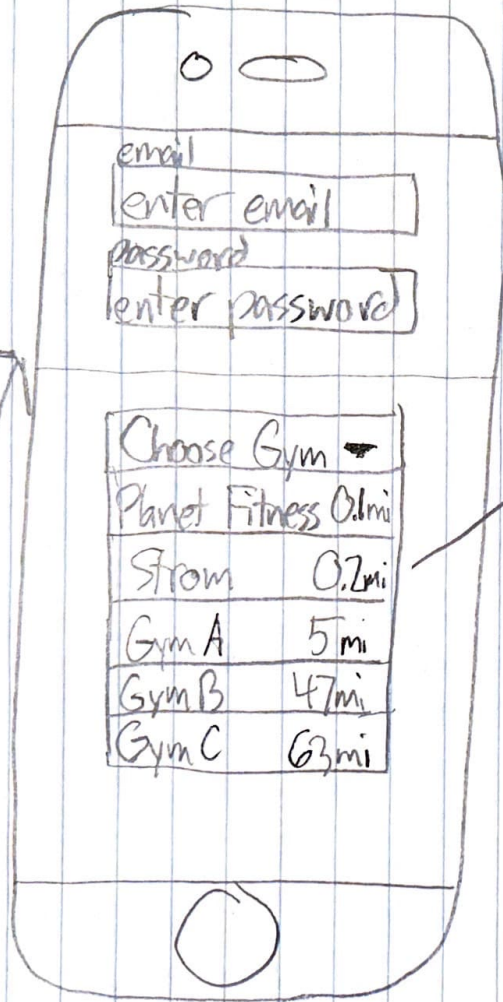 email
enter email
password
enter password
Choose Gym
Planet Fitness 0.1mi
Strom 0.2mi
Gym A 5 mi
Gym B 47mi
Gym C 63mi